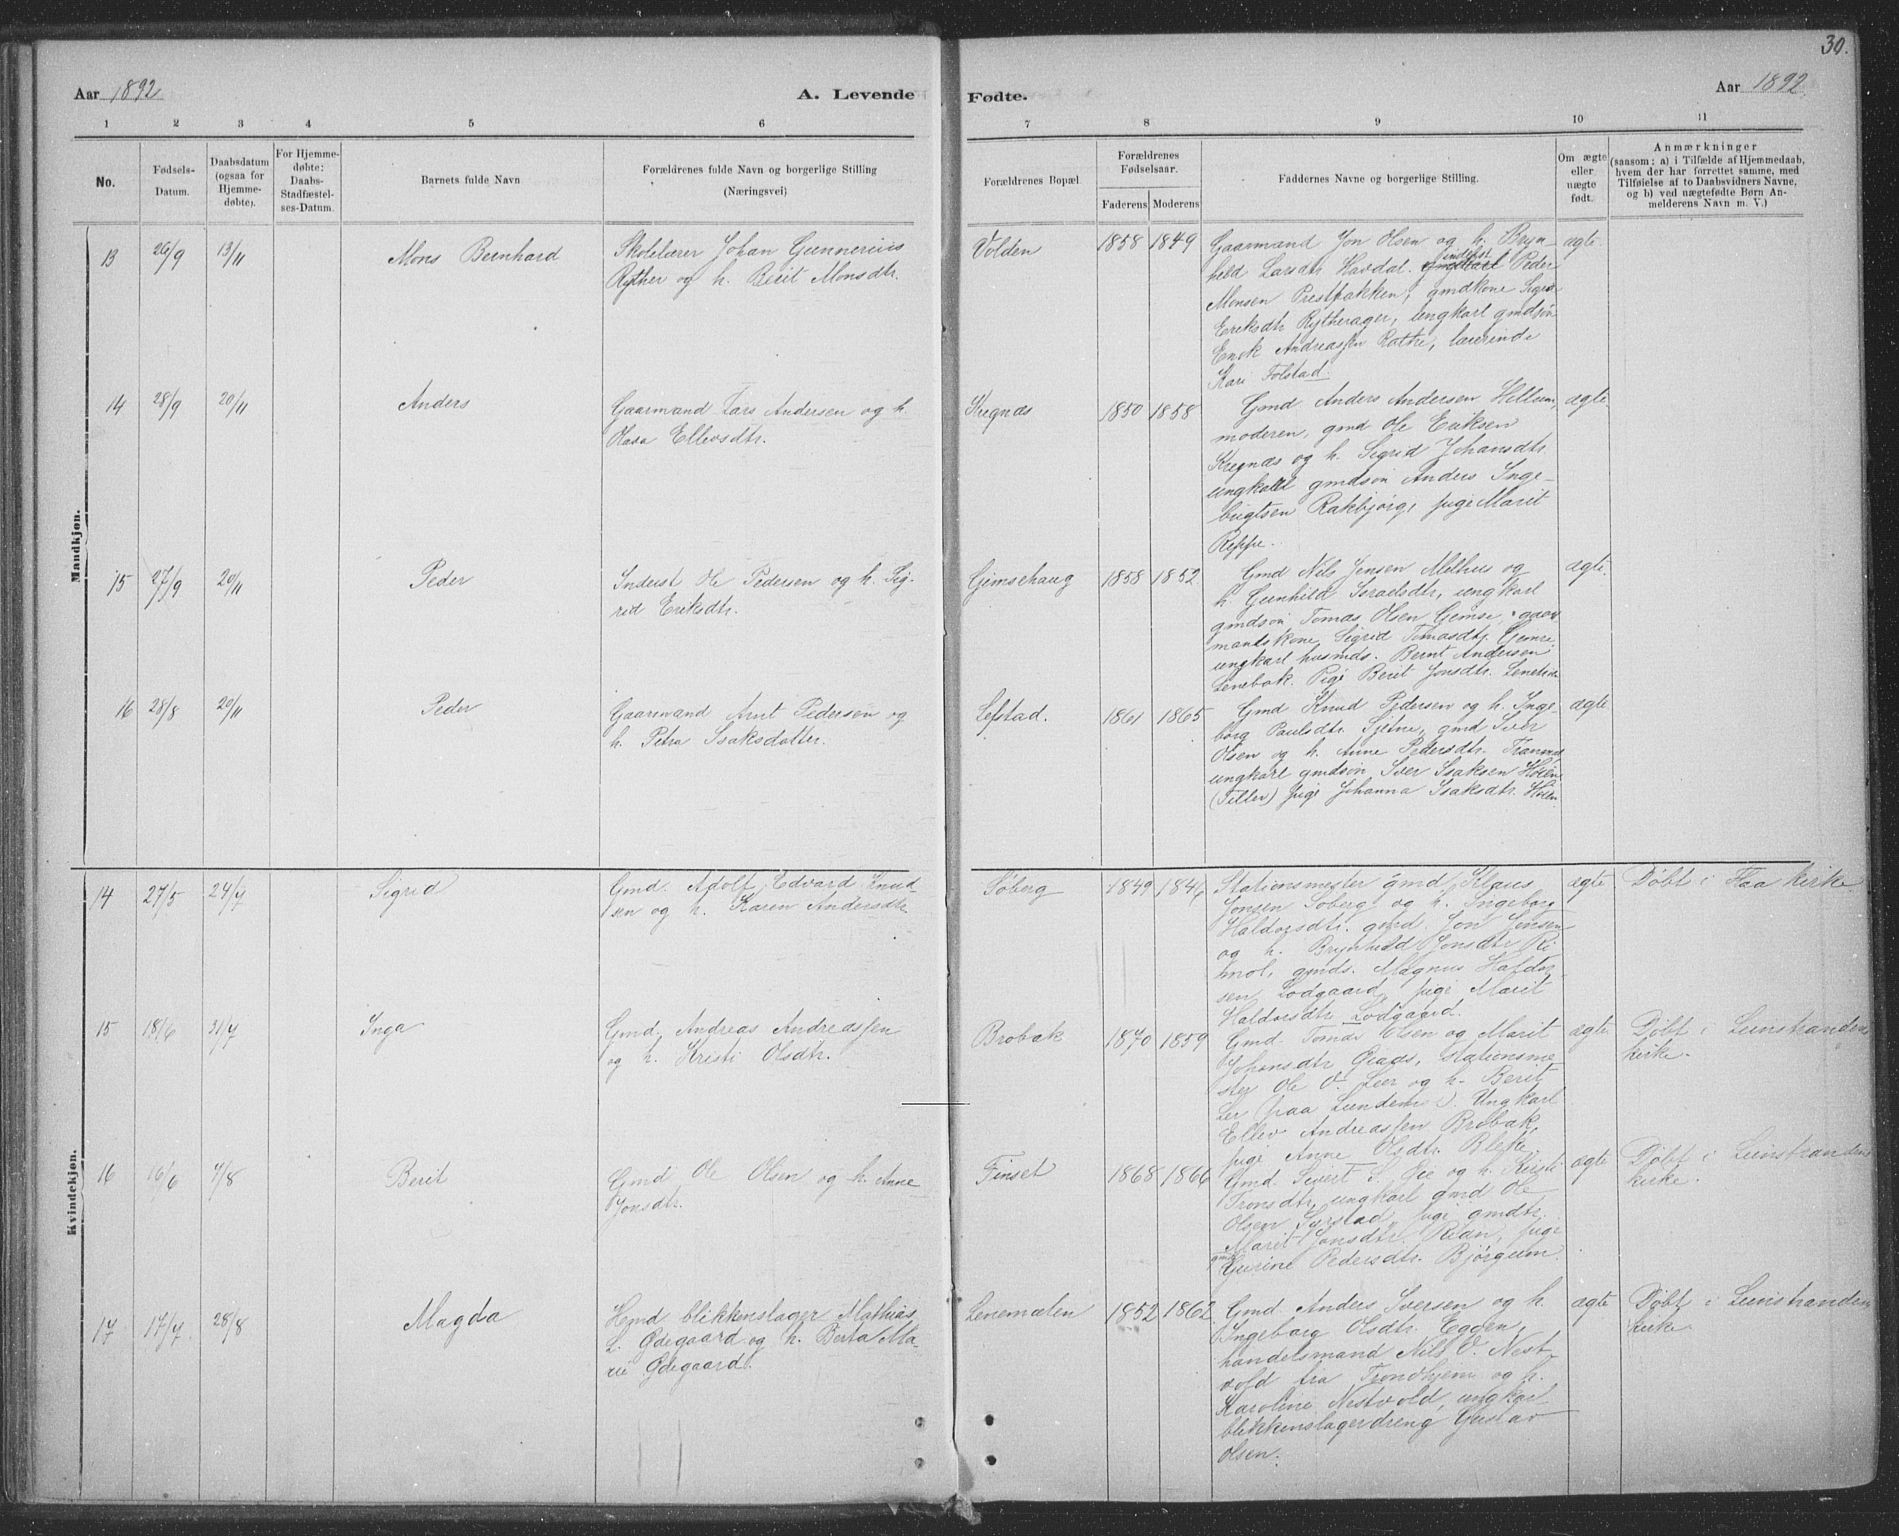 30.
Aar 1892
A. Levende
Fødte.
Aar 1892.
1 2 3 4 5 6 7 8 9 10 11
No.
Fødsels-
Datum.
Daabsdatum
(ogsaa for
Hjemme-
døbte).
For Hjemme-
døbte:
Daabs-
Stadfæstel-
ses-Datum.
Barnets fulde Navn
Forældrenes fulde Navn og borgerlige Stilling
(Næringsvei)
Forældrenes Bopæl.
Forældrenes
Fødselsaar.
Faderens Moderens
Faddernes Navne og borgerlige Stilling.
Om ægte
eller
uægte
født.
Anmærkninger
(saasom: a) i Tilfælde af Hjemmedaab,
hvem der har forrettet samme, med
Tilføielse af to Daabsvidners Navne,
og b) ved uægtefødte Børn An-
melderens Navn m. V.)
Mandkjøn.
13 26/9 13/11
Mons Bernhard
Skolelærer Johan Gunnerius
Ryther og h. Berit Monsdtr.
Volden
1858 1849
Gaarmand Jon Olsen og h. Bryn-
hild Larsdtr Havdal. inderst Peder
Monsen Prestbakken, gmdkone Sigri
Eriksdtr Rytherager, ungkarl gmdsøn
Enok Andreassen Rathe, lærerinde
Kari Folstad.
ægte.
14 28/9 20/11
Anders
Gaarmand Lars Andersen og h.
Olava Ellevsdtr.
Kregnæs
1850 1858
Gmd Anders Andersen Hollum,
moderen, gmd Ole Eriksen
Kregnæs og h. Sigrid Johansdtr.
ungkarl gmdsøn Anders Inge-
brigtsen Rakbjørg, pige Marit
Reppe.
ægte.
15 27/9 20/11
Peder
Inderst Ole Pedersen og h. Sig-
rid Eriksdtr.
Gimsehaug
1858 1852
Gmd Nils Jensen Melhus og
h. Gunhild Israelsdtr, ungkarl
gmdsøn Tomas Olsen Gimse, gaar
mandskone Sigrid Tomasdtr. Gimse
ungkarl husmds. Bernt Andersen
Lenebak. Pige Berit Jonsdtr.
ægte.
16 28/8 20/11
Peder
Gaarmand Arnt Pedersen og
h. Petra Isaksdatter.
Lefstad.
1861 1865
Gmd Knud Pedersen og h. Inge-
borg Paulsdtr. Sjetne, gmd Iver
Olsen og h. Anne Pedersdtr.
ungkarl gmdsøn Iver Isaksen Holen
(Tiller) pige Johanna Isaksdtr. Holen
ægte
Kvindekjøn.
14 27/5 24/7
Sigrid
Gmd. Adolf Edvard Knud
sen og h. Karen Andersdtr
Søberg
1849 1846
Stationsmester gmd Klaus
Jonsen Søberg og h. Ingeborg
Haldorsdtr. gmd. Jon Jensen
og h. Brynhild Jonsdtr Ri
mol, gmds. Magnus Haldor
sen Lodgaard, pige Marit
Haldorsdtr Lodgaard.
ægte
Døbt i Flaa kirke
15 18/6 31/7
Inga
Gmd. Andreas Andreassen
og h. Kristi Olsdtr.
Brobak
1870 1859
Gmd. Tomas Olsen og Marit
Johansdtr stationsme
ster Ole O. Leer og h. Berit
Ler paa Lundemo. Ungkarl
Ellev Andreassen Brobak,
pige Anne Olsdtr. Blekc
ægte
Døbt i Leinstrandens
kirke.
16 16/6 7/8
Berit
Gmd Ole Olsen og h. Anne
Jonsdtr.
Finset
1868 1866
Gmd. Sivert S. Øie og h. Kirsti
Tronsdtr, ungkarl gmd Ole
Olsen pige gmdtr.
Marit Jonsdtr. Kvan, pige
gmd Gurine Pedersdtr. Bjørgum.
ægte
Døbt i Leinstrandens
kirke.
17 17/7 28/8
Magda
Hemd blikkenslager Mathias
L. Ødegaard og h. Berta Ma-
rie Ødegaard.
Lenemælen
1852 1862
Gmd. Anders Iversen og h.
Ingeborg Olsdtr. Eggen,
handelsmand Nils O. Nest-
vold fra Trondhjem og h.
Karoline Nestvold, ungkarl
blikkenslagerdreng Gustav
Olsen.
ægte
Døbt i Leinstrandens
kirke